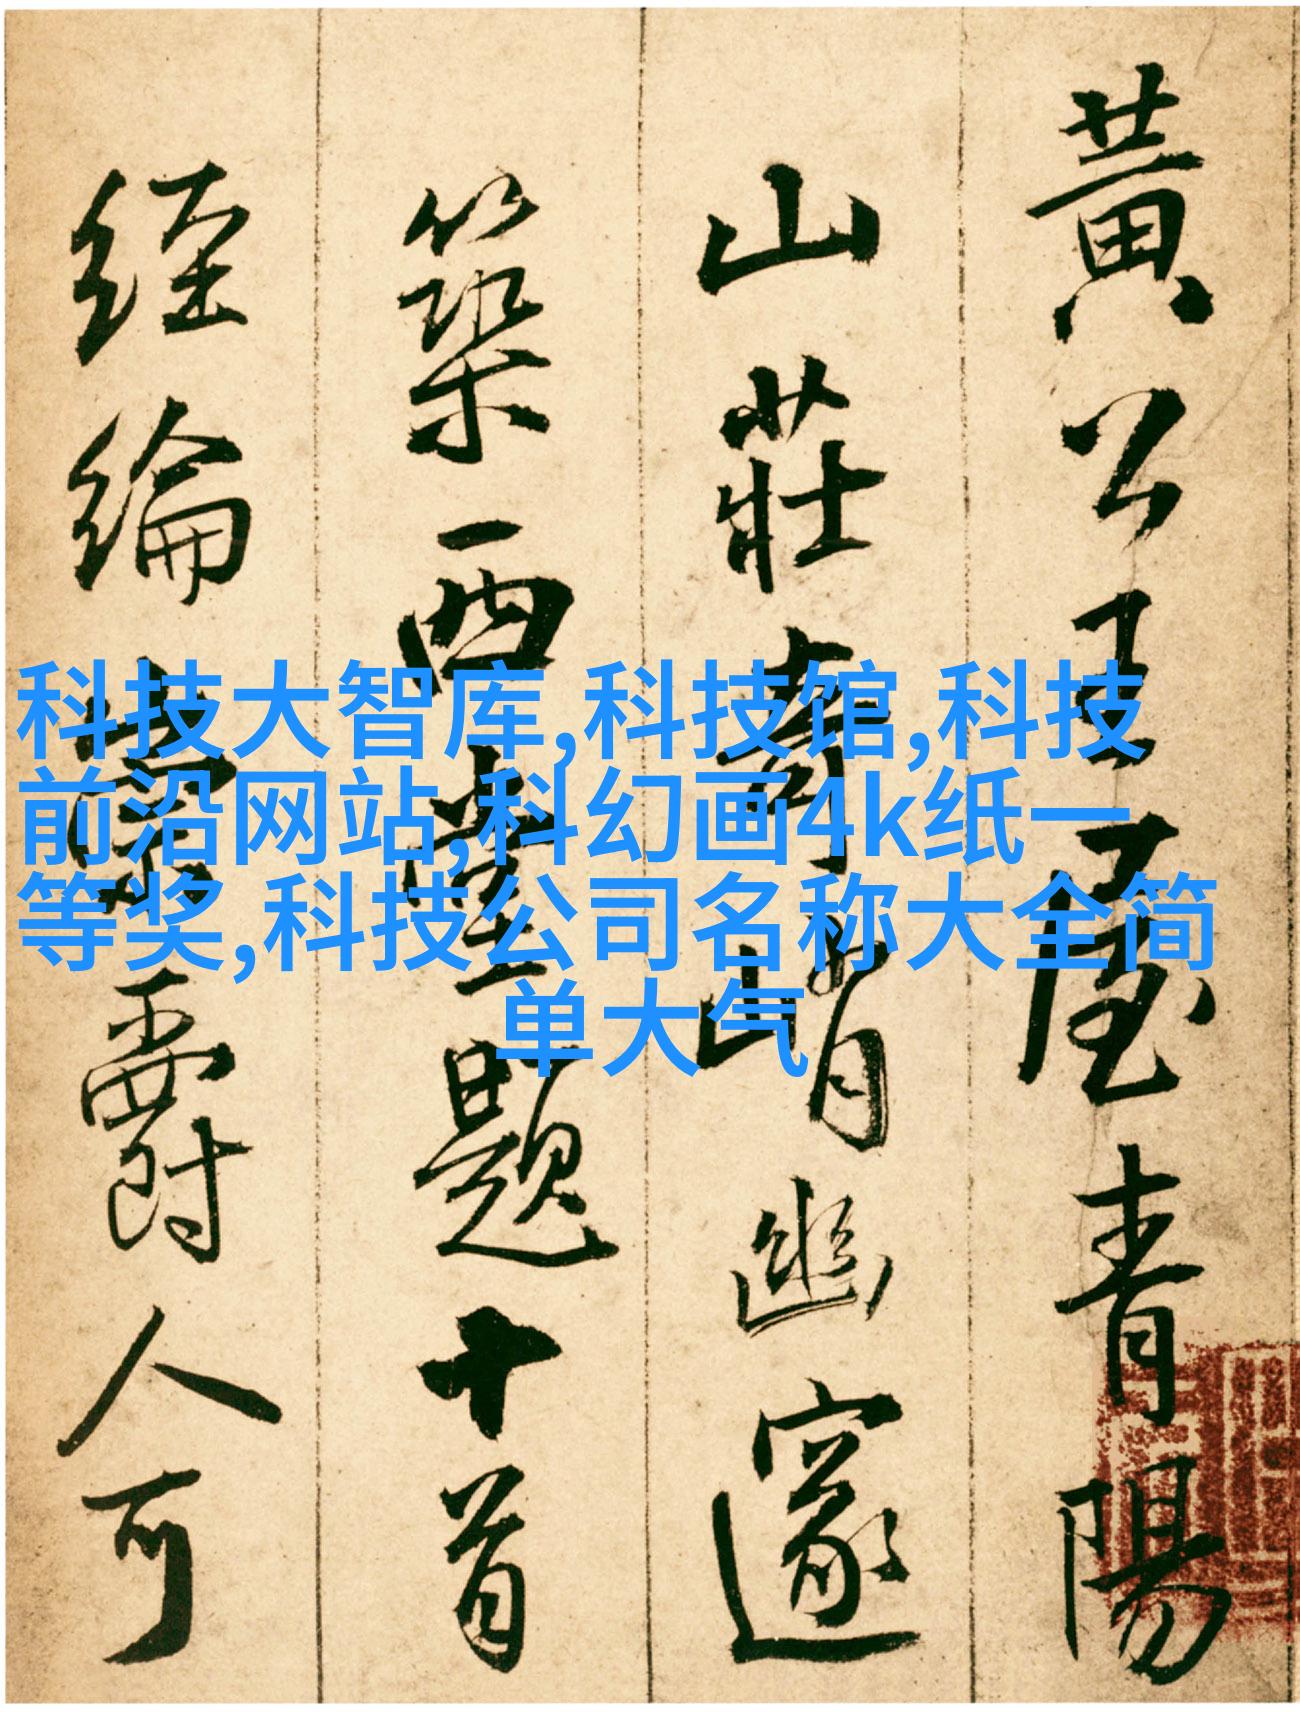 黃公王屋青陽
山莊奇峭幽邃
築西臺題十首
經綸當爵人可
科技大智库,科技馆,科技
前沿网站,科幻画4k纸一
等奖,科技公司名称大全简
单大气